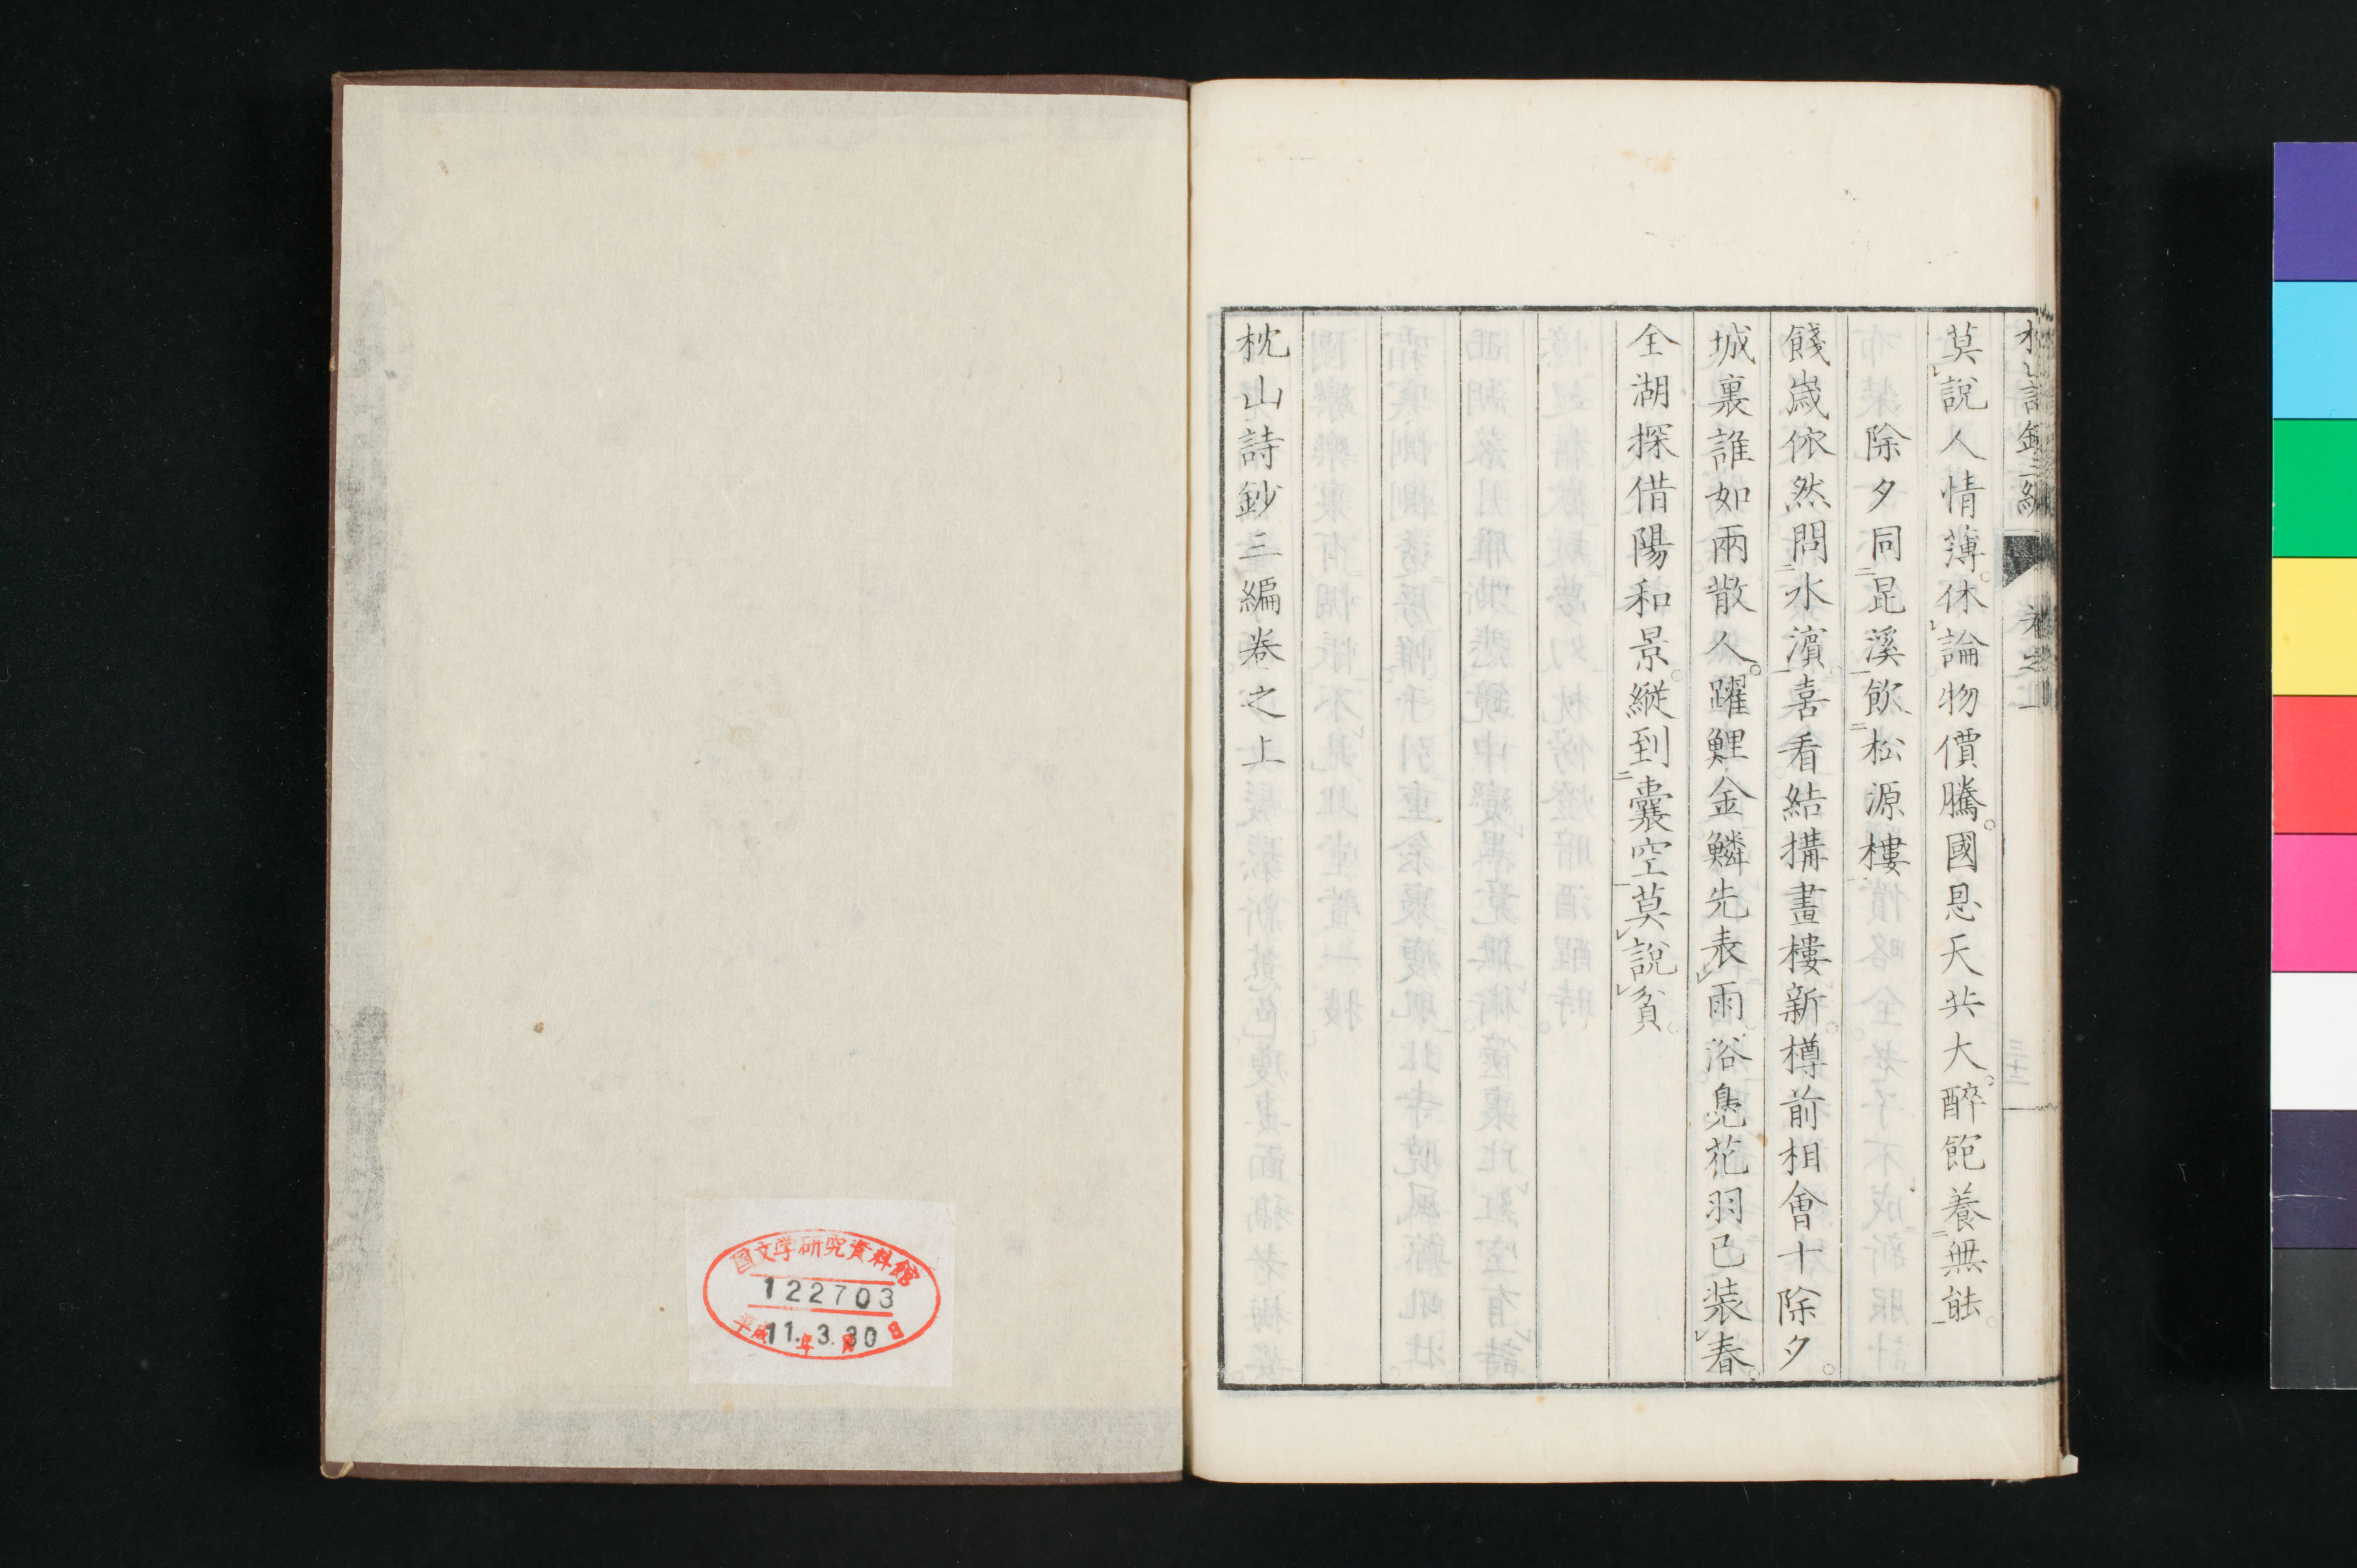 枕山詩鈔三編 卷之上
莫說人情薄。休論物價騰。國恩天共大。醉飽養無能。
除夕同昆溪飲松源樓
餞歲依然問水濱。喜看結搆畫樓新。樽前相會十除夕。
城裏誰如兩散人。躍鯉金鱗先表雨。浴鳧花羽已裝春。
全湖探借陽和景。縱到囊空莫說貧。
枕山詩鈔三編卷之上
国文学研究資料館
122703
平成11年3月30日